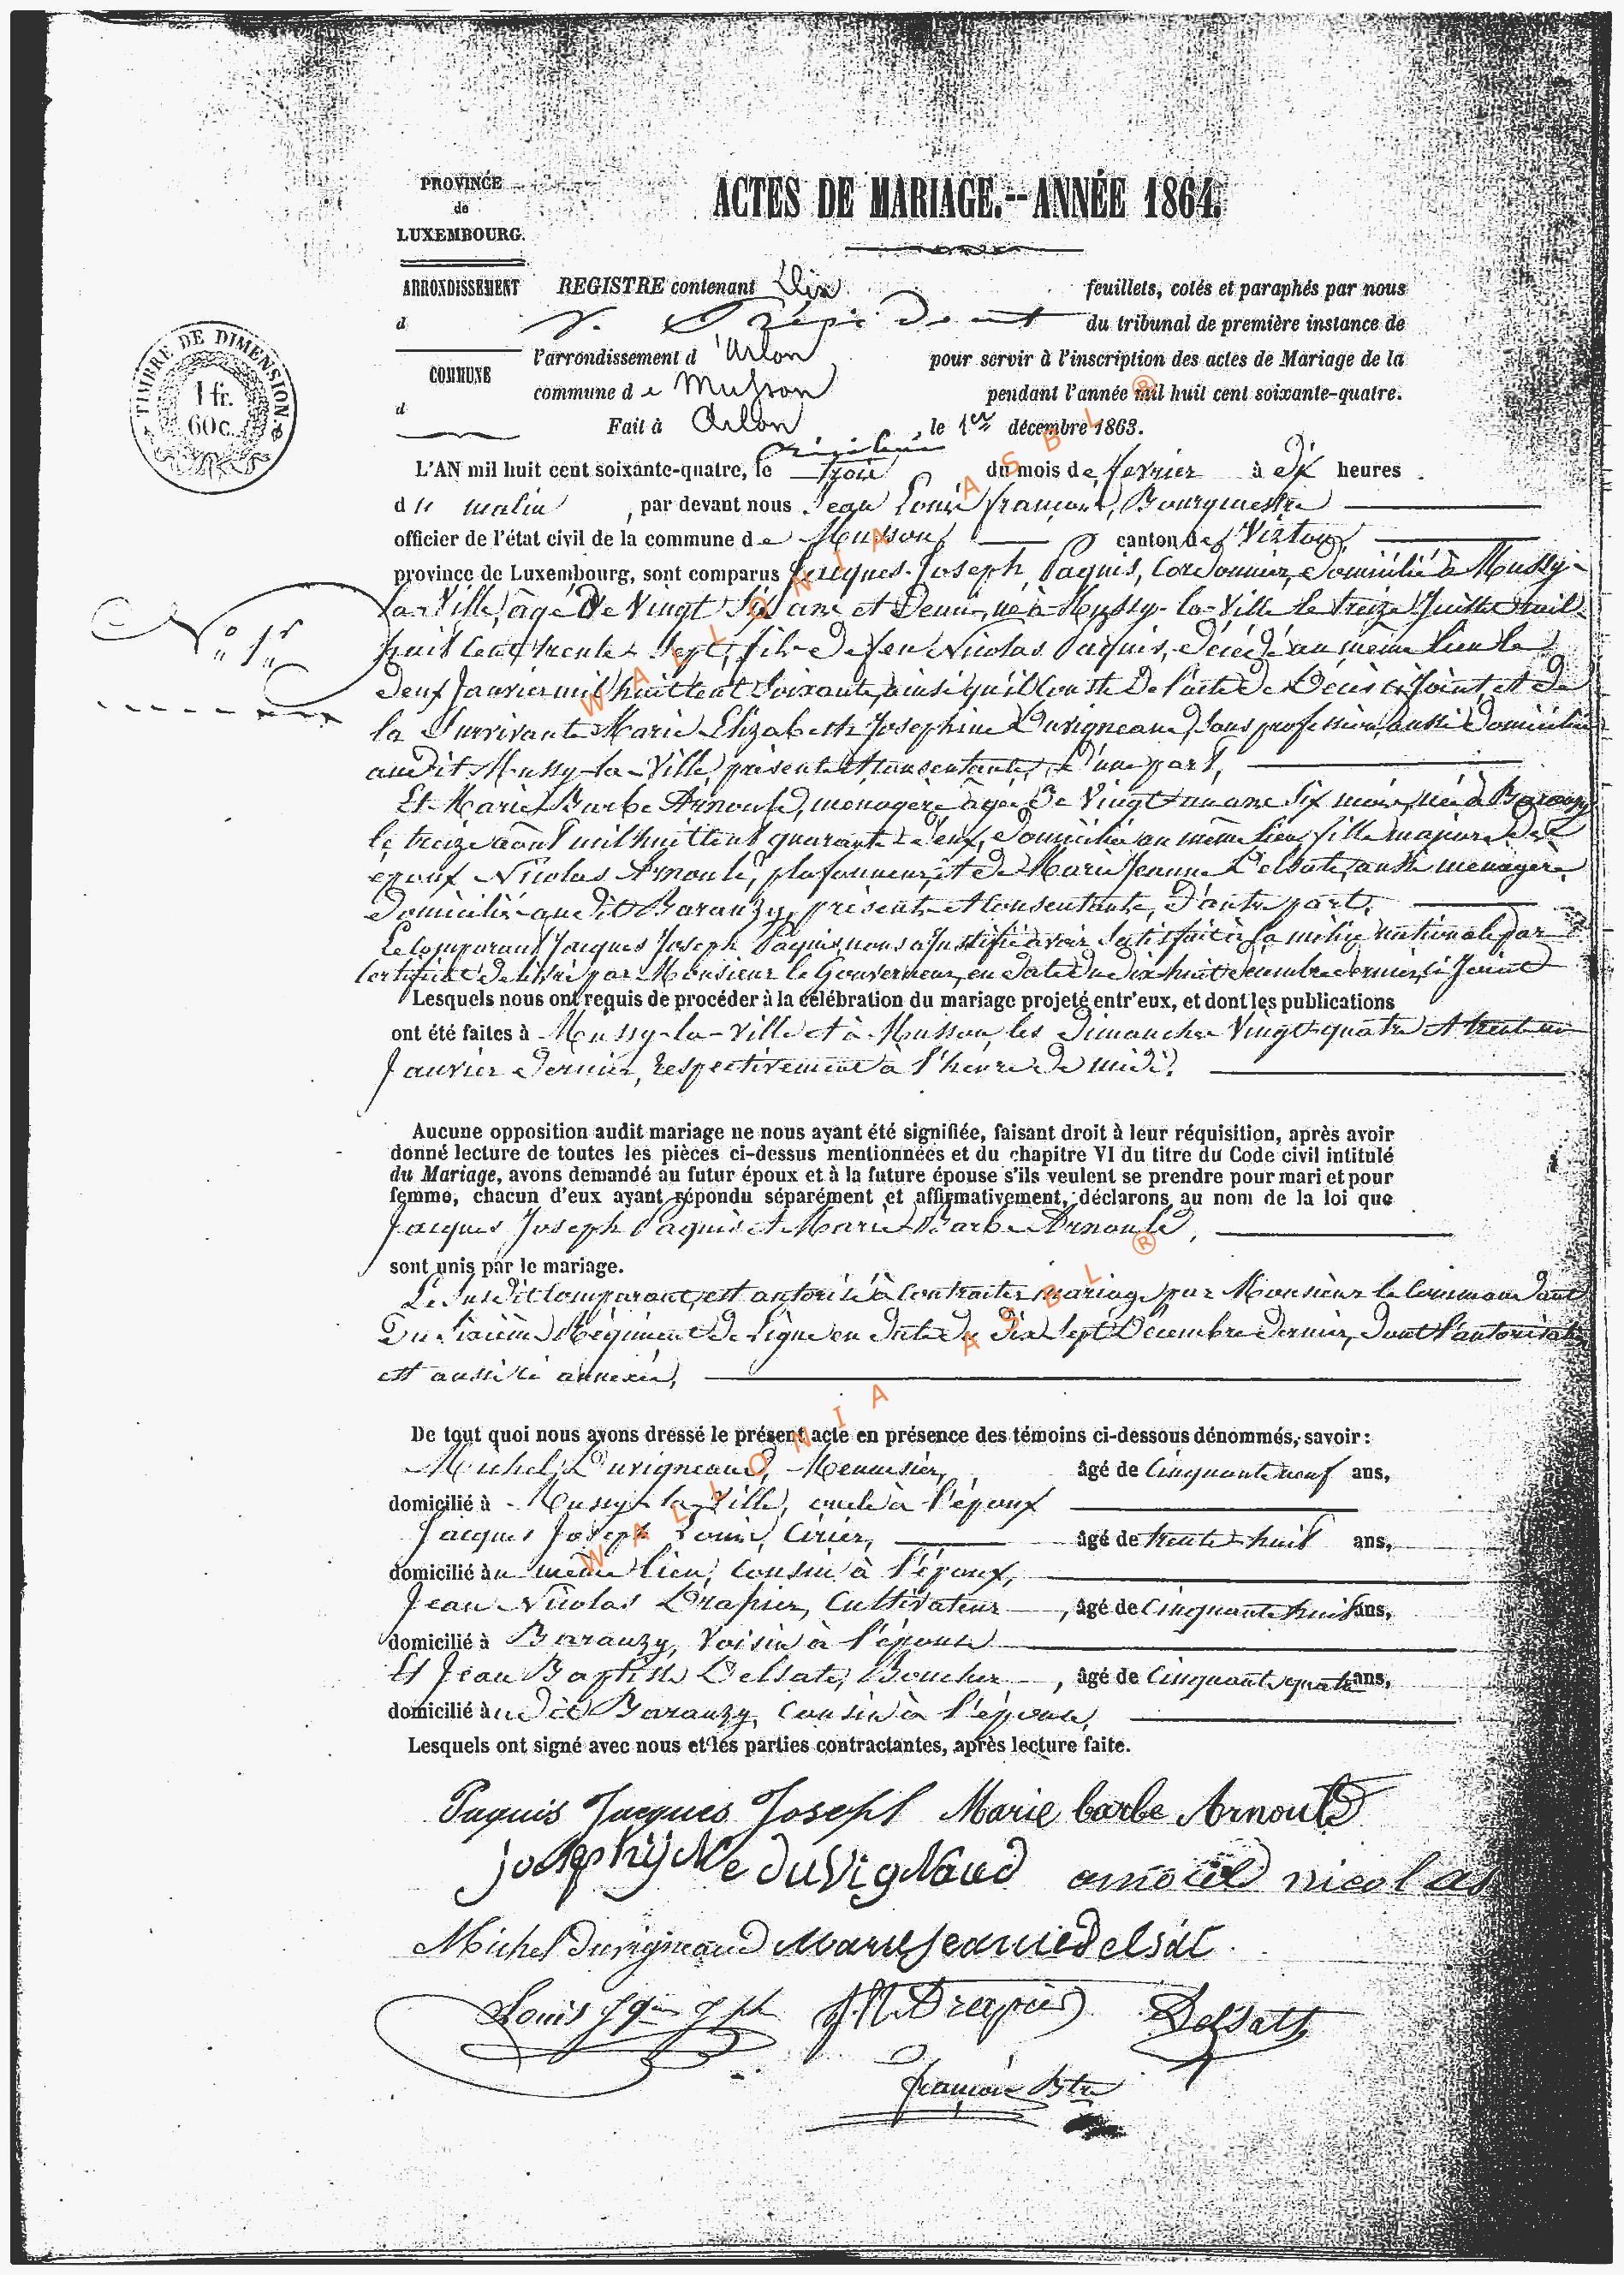 PROVINCE
de
LUXEMBOURG.
ACTES DE MARIAGE.--ANNÉE 1864.
ARRONDISSEMENT
d
COMMUNE
d
TIMBRE DE DIMENSION.
1 fr.
60 c.
REGISTRE contenant Dix feuillets, cotés et paraphés par nous
Président du tribunal de première instance de
l'arrondissement d'Arlon pour servir à l'inscription des actes de Mariage de la
commune de Musson pendant l'année mil huit cent soixante-quatre.
Fait à Arlon, le 1er décembre 1863.
L'AN mil huit cent soixante-quatre, le trois du mois de février à dix heures
du matin, par devant nous Jean Louis françois, Bourgmestre
officier de l'état civil de la commune de Musson canton de Virton,
province de Luxembourg, sont comparus Jacques Joseph Paquis, Cordonnier, domicilié à Mussy-
N° 1er
la-Ville, âgé de Vingt Six ans et Demi, né à Mussy-la-Ville le treize Juillet mil
huit Cent trente Sept, fils de feu Nicolas Paquis, décédé au même lieu le
deux Janvier mil huit Cent Soixante, ainsi qu'il Conste de l'acte de Décès ci Joint, et de
la Survivante Marie Elizabeth Josephine Duvigneaud, Sans profession, aussi domiciliée
audit Mussy-la-Ville, présente et consentante, d'une part,
Et Marie Barbe Arnould, ménagère âgée de Vingt un ans Six mois, née à Baranzy
le treize août mil huit Cent quarante deux, domiciliée au même lieu, fille majeure des
époux Nicolas Arnould, plafonneur, et de Marie Jeanne Delsate, aussi ménagère,
domiciliés audit Baranzy, présents et Consentants, d'autre part.
Le Comparant Jacques Joseph Paquis nous a Justifié avoir Satisfait à la milice nationale par
Certificat délivré par Monsieur le Gouverneur, en date du dix huit décembre dernier, ci Joint
Lesquels nous ont requis de procéder à la célébration du mariage projeté entr'eux, et dont les publications
ont été faites à Mussy-la-Ville et à Musson, les dimanches Vingt-quatre et trente un
Janvier dernier, respectivement à l'heure de midi.
Aucune opposition audit mariage ne nous ayant été signifiée, faisant droit à leur réquisition, après avoir
donné lecture de toutes les pièces ci-dessus mentionnées et du chapitre VI du titre du Code civil intitulé
du Mariage, avons demandé au futur époux et à la future épouse s'ils veulent se prendre pour mari et pour
femme, chacun d'eux ayant répondu séparément et affirmativement, déclarons au nom de la loi que
Jacques Joseph Paquis et Marie Barbe Arnould,
sont unis par le mariage.
Le Susdit Comparant, est autorisé à Contracter mariage par Monsieur le Commandant
Du Sixième Régiment de Ligne en date du Dix Sept Décembre dernier, dont l'autorisation
est aussi ci annexée,
De tout quoi nous avons dressé le présent acte en présence des témoins ci-dessous dénommés, savoir :
Michel Duvigneaud, Menuisier, âgé de Cinquante neuf ans,
domicilié à Mussy-la-Ville, oncle à l'époux
Jacques Joseph Louis, Cirier, âgé de trente huit ans,
domicilié au même lieu, Cousin à l'époux,
Jean Nicolas Drapier, Cultivateur, âgé de Cinquante huit ans,
domicilié à Baranzy, Voisin à l'épouse
Et Jean Baptiste Delsate, Boucher, âgé de Cinquante quatre ans,
domicilié audit Baranzy, Cousin à l'épouse,
Lesquels ont signé avec nous et les parties contractantes, après lecture faite.
Paquis Jacques Joseph Marie barbe Arnould
josephijNe duVigNaud arnould nicolas
Michel Duvigneaud Marie jeanne delsat
Louis Jques Jph J.N.Drapier Delsatte
françois Btre
WALLONIA ASBL ®
WALLONIA ASBL ®